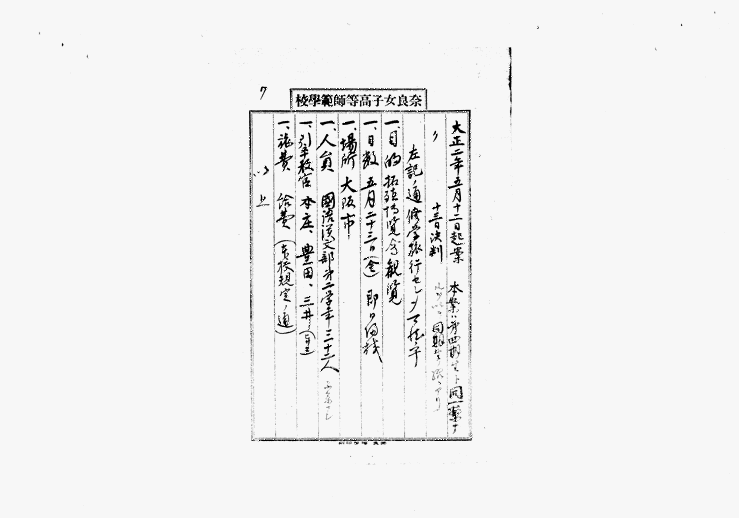 奈良女子高等師範學校
大正二年五月十二日起案 本案ハ第四期生ト同一案ナ
〃 十三日決判
左記ノ通修学旅行セシメ可然乎
一、目的 拓殖博覧会観覧
一、日数 五月二十三日(金) 即日帰校
一、場所 大阪市
一、人員 國語漢文部第二学年 三十三人
一、引率教官 本庄、豊田、三井
一、旅費 給費(本校規定ノ通)
以上
7